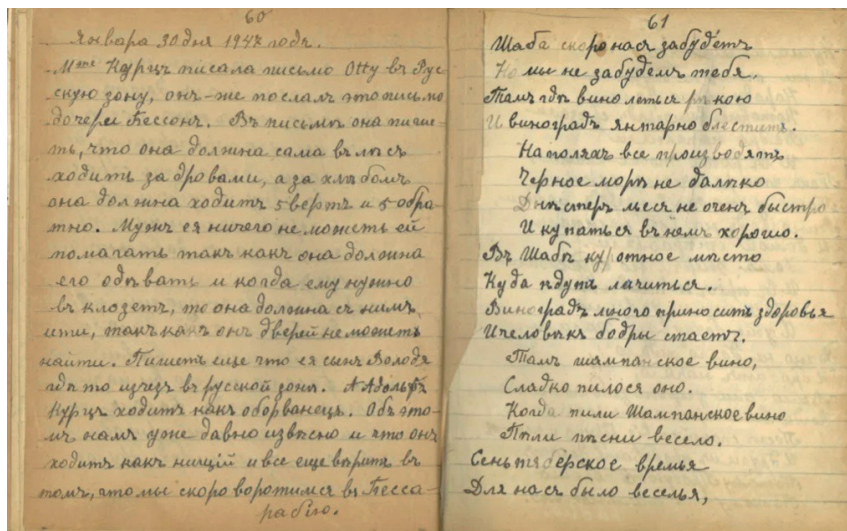 60
Января 30 дня 1947 годъ.
Mme Курцъ писала письмо Otty въ Рус
скую зону, онъ-же послалъ это письмо
дочери Бессонъ. Въ письмѣ она пише-
тъ, что она должна сама въ лѣсъ
ходить за дровами, а за хлѣбомъ
она должна ходитъ 5 вертъ и 5 обра-
тно. Мужъ ея ничего не можетъ ей
помагать такъ какъ она должна
его одѣвать и когда ему нужно
въ клозетъ, то она должна съ нимъ
ити, такъ какъ онъ дверей не можетъ
найти. Пишетъ еще что ея сынъ Володя
гдѣ то изчезъ въ русской зонѣ. А Адольфъ
Курцъ ходитъ какъ оборванецъ. Объ это-
мъ намъ уже давно извѣсно и что онъ
ходитъ какъ нищій и все еще вѣритъ въ
томъ, что мы скоро воротимся въ Бесса-
рабію.
61
Шаба скоро насъ забудетъ
Но мы не забудемъ тебя,
Тамъ гдѣ вино леться рѣкою
И виноградъ янтарно блеститъ.
На поляхъ все производятъ
Черное морѣ не далѣко
Днѣстеръ льеся не оченъ быстро
И купаться въ немъ хорошо.
Въ Шабѣ курртное мѣсто
Куда пдутъ лачиться.
Виноградъ много приноситъ здоровья
И человѣкъ бодры стаетъ.
Тамъ шампанское вино,
Сладко пилося оно.
Когда пили Шампанское вино
Пѣли пѣсни весело.
Сеньтяберское времья
Для насъ было веселья,